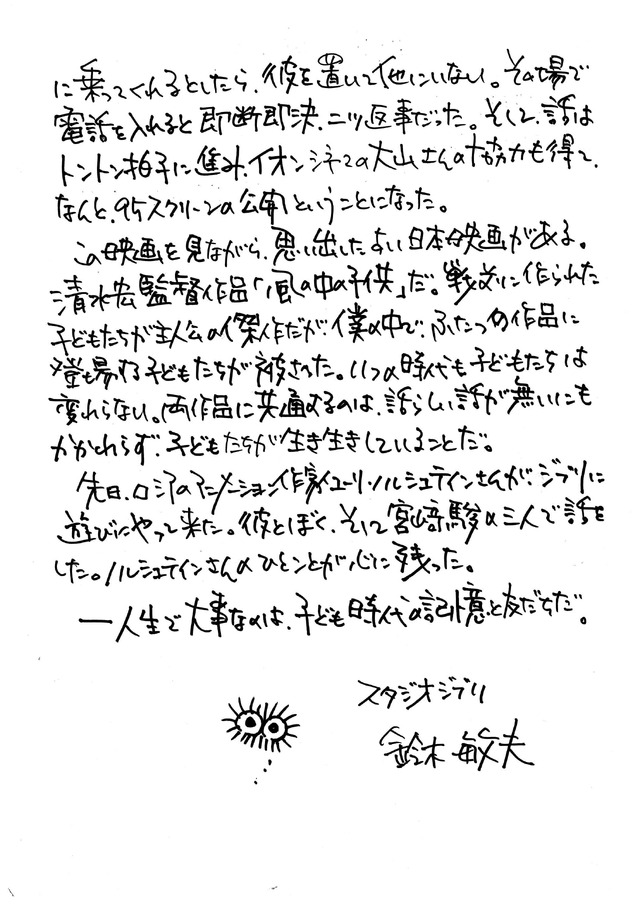 に乗ってくれるとしたら、彼を置いて他にいない。その場で
電話を入れると即断即決、二ツ返事だった。そして、話は
トントン拍子に進み、イオンシネマの大山さんの協力も得て、
なんと、95スクリーンの公開ということになった。
この映画を見ながら、思い出したよい日本映画がある。
清水宏監督作品「風の中の子供」だ。戦前に作られた
子どもたちが主人公の傑作だが、僕の中で、ふたつの作品に
登場する子どもたちが被さった。いつの時代も子どもたちは
変わらない。両作品に共通するのは、話らしい話が無いにも
かかわらず、子どもたちが生き生きしていることだ。
先日、ロシアのアニメーション作家ユーリ・ノルシュテインさんが、ジブリに
遊びにやって来た。彼とぼく、そして宮﨑駿の三人で話を
した。ノルシュテインさんのひとことが心に残った。
―人生で大事なのは、子ども時代の記憶と友だちだ。
スタジオジブリ
鈴木敏夫